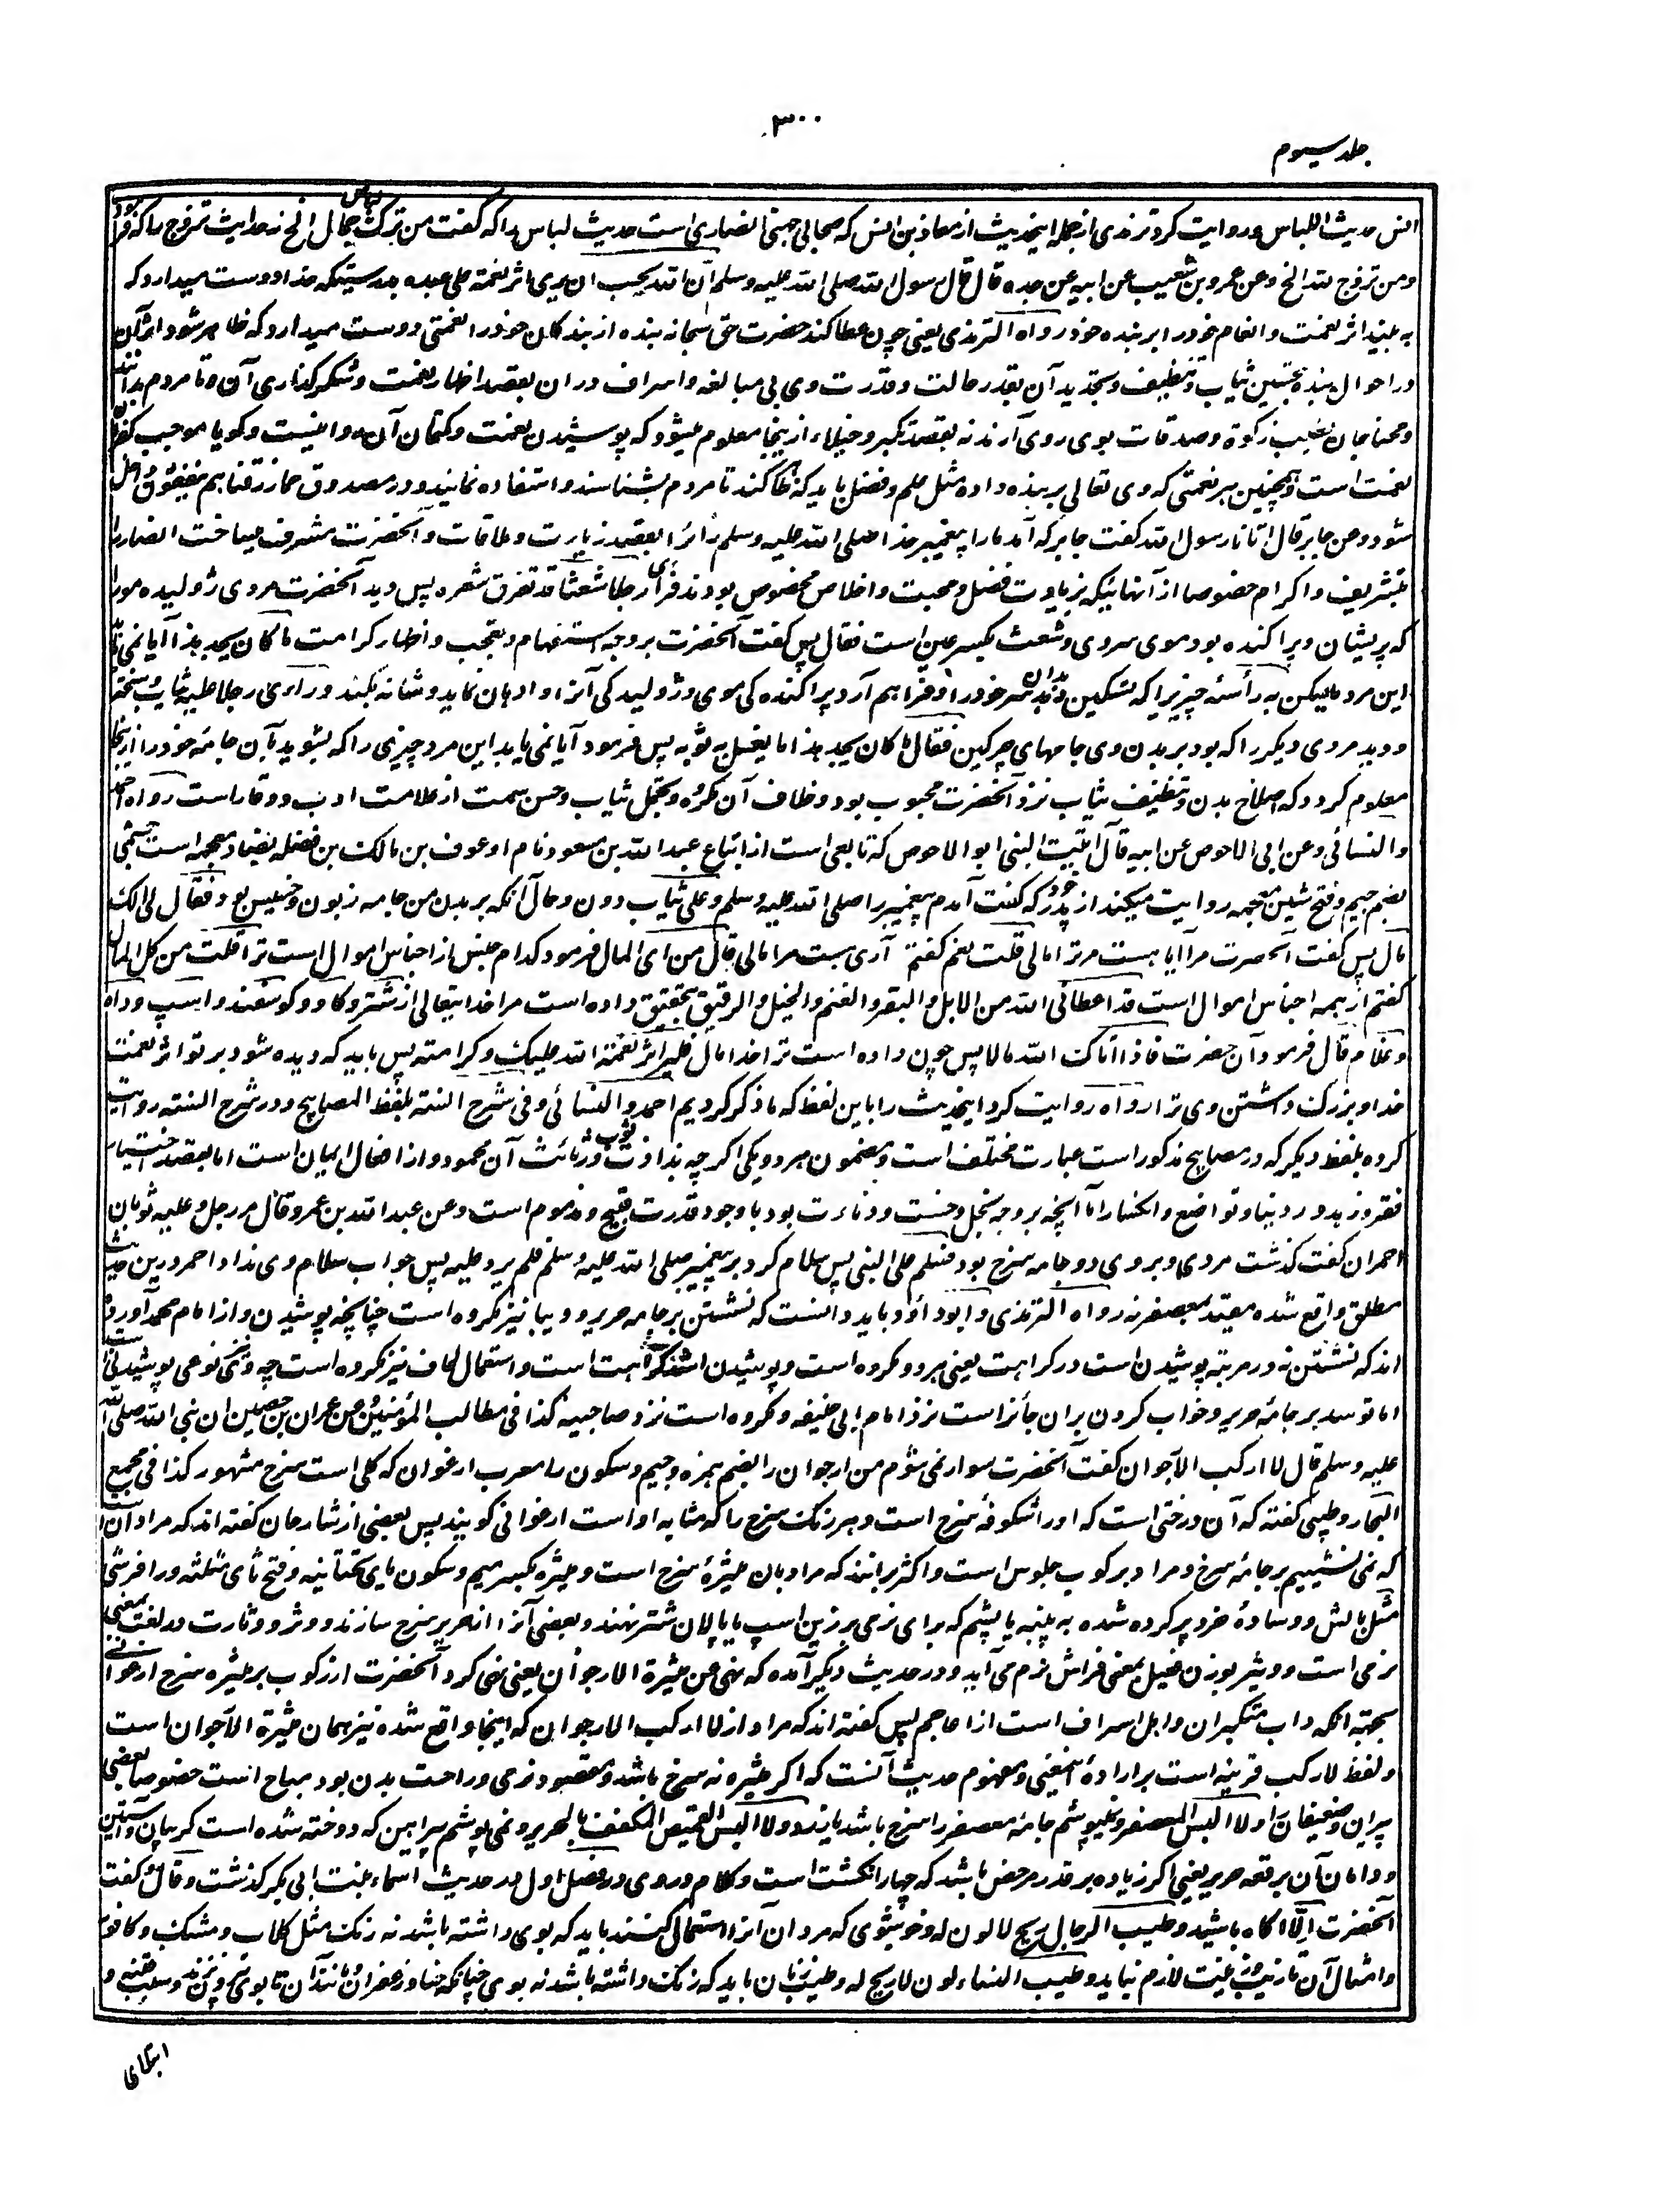 ۳۰۰
جلد سیوم
انس حدیث اللباس و روایت کرد ترمذی از جمله اینحدیث از معاذ بن انس که صحابی جهنی انصاری است حدیث لباس را که گفت من ترک لباس جمال الخ نه حدیث تزوج را که فرمود
ومن تزوج لله الخ وعن عمرو بن شعیب عن ابیه عن جده قال قال رسول الله صلی الله علیه وسلم ان الله یحب ان یری اثر نعمته علی عبده بدرستیکه خدا دوست میدارد که
به بیند اثر نعمت و انعام خود را بر بنده خود رواه الترمذی یعنی چون عطا کند حضرت حق سبحانه بنده از بندگان خود را نعمتی دوست میدارد که ظاهر شود اثر آن
در احوال بنده بتحسین ثیاب و تنظیف و تجدید آن بقدر حالت و قدرت وی بی مبالغه و اسراف در ان بقصد اظهار نعمت و شکر گذاری آن و تا مردم بدانند
ومحتاجان بطلب زکوة وصدقات بوی روی آرند نه بقصد تکبر و خیلاء و ازینجا معلوم میشود که پوشیدن نعمت و کتمان آن روا نیست و گویا موجب کفران
نعمت است و همچنین هر نعمتی که وی تعالی بر بنده داده مثل علم و فضل باید که ظاهر کند تا مردم بشناسند و استفاده نمایند و در مصدوق مما رزقناهم ینفقون داخل
شود وعن جابر قال اتانا رسول الله گفت جابر که آمد ما را پیغمبر خدا صلی الله علیه وسلم زائرا بقصد زیارت و ملاقات و آنحضرت مشرف میساخت انصار را
بتشریف و اکرام خصوصا از آنهائیکه بزیادت فضل و محبت و اخلاص مخصوص بودند فرأی رجلا شعثا قد تفرق شعره پس دید آنحضرت مردی ژولیده مو را
که پریشان و پراکنده بود موی سر وی و شعث بکسر عین است فقال پس گفت آنحضرت بر وجه استفهام و تعجب و اظهار کرامت ما کان یجد هذا آیا نمی یابد
این مرد ما یسکن به رأسه چیزیرا که تسکین دهد بدان سر خود را و فراهم آرد پراکنده گی موی و ژولیدگی آنرا و ادهان نماید و شانه بکند ورأی رجلا علیه ثیاب وسخة
ودید مردی دیگر را که بود بر بدن وی جامهای چرکین فقال ما کان یجد هذا ما یغسل به ثوبه پس فرمود آیا نمی یابد این مرد چیزی را که بشوید بآن جامه خود را ازینجا
معلوم گردد که اصلاح بدن و تنظیف ثیاب نزد آنحضرت محبوب بود و خلاف آن مکروه و تجمل ثیاب و حسن سمت از علامت ادب و وقار است رواه احمد
والنسائی وعن ابی الاحوص عن ابیه قال اتیت النبی ابو الاحوص که تابعی است از اتباع عبد الله بن مسعود نام او عوف بن مالک بن نضله بضاد معجمه است جشمی
بضم جیم و فتح شین معجمه روایت میکند از پدر خود که گفت آمدم پیغمبر را صلی الله علیه وسلم وعلی ثیاب دون و حال آنکه بر بدن من جامه زبون و خسیس بود فقال لی الک
مال پس گفت آنحضرت مرا آیا هست مر ترا مالی قلت نعم گفتم آری هست مرا مالی قال من ای المال فرمود کدام جنس از اجناس اموال است ترا قلت من کل المال
گفتم از همه اجناس اموال است قد اعطانی الله من الابل والبقر والغنم والخیل والرقیق بتحقیق داده است مرا خدایتعالی از شتر و گاو و گوسفند و اسپ و داه
و غلام قال فرمود آن حضرت فاذا اتاک الله مالا پس چون داده است ترا خدا مال فلیر اثر نعمة الله علیک وکرامته پس باید که دیده شود بر تو اثر نعمت
خدا و بزرگ داشتن وی ترا رواه روایت کرد اینحدیث را باین لفظ که ما ذکر کردیم احمد والنسائی وفی شرح السنه بلفظ المصابیح و در شرح السنه روایت
کرده بلفظ دیگر که در مصابیح مذکور است عبارت مختلف است و مضمون هر دو یکی اگر چه بذاذت ثوب و رثاثت آن محمود و از افعال ایمان است اما بقصد اختیار
فقر و زهد در دنیا و تواضع و انکسار اما آنچه بر وجه بخل و خست و دناءت بود با وجود قدرت قبیح و مذموم است وعن عبد الله بن عمرو قال مر رجل وعلیه ثوبان
احمران گفت گذشت مردی و بر وی دو جامه سرخ بود فسلم علی النبی پس سلام کرد بر پیغمبر صلی الله علیه وسلم فلم یرد علیه پس جواب سلام وی نداد احمر درین حدیث
مطلق واقع شده مقید بمعصفر نه رواه الترمذی وابو داؤد و باید دانست که نشستن بر جامه حریر و دیبا نیز مکروه است چنانچه پوشیدن و از امام محمد آورده
اند که نشستن نه در مرتبه پوشیدن است در کراهت یعنی هر دو مکروه است و پوشیدن اشد کراهت است و استعمال لحاف نیز مکروه است چه وی نوعی پوشیدنی است
اما توسد بر جامه حریر و خواب کردن بران جائز است نزد امام ابی حنیفه و مکروه است نزد صاحبیه کذا فی مطالب المؤمنین وعن عمران بن حصین ان نبی الله صلی الله
علیه وسلم قال لا ارکب الارجوان گفت آنحضرت سوار نمی شوم من ارجوان را بضم همزه و جیم و سکون را معرب ارغوان که گلی است سرخ مشهور کذا فی مجمع
البحار و طیبی گفته که آن درختی است که او را شگوفه سرخ است و هر رنگ سرخ را که مشابه او است ارغوانی گویند پس بعضی از شارحان گفته اند که مراد آنست
که نمی نشینیم بر جامه سرخ و مراد بر کوب جلوس است و اکثر برانند که مراد بان میثرهٔ سرخ است و میثره بکسر میم و سکون یای تحتانیه و فتح ثای مثلثه و را فرشی
مثل بالش و وسادهٔ خرد پر کرده شده به پنبه یا پشم که برای نرمی بر زین اسپ یا پالان شتر نهند و بعضی آنرا از حریر سرخ سازند و وثر و وثارت در لغت بمعنی
نرمی است و وثیر بوزن فعیل بمعنی فراش نرم می آید و در حدیث دیگر آمده که نهی عن میثرة الارجوان یعنی نهی کرد آنحضرت از رکوب بر میثره سرخ ارغوانی
بجهته آنکه داب متکبران و اهل اسراف است از اعاجم پس گفته اند که مراد از لا ارکب الارجوان که اینجا واقع شده نیز همان میثرة الارجوان است
و لفظ لا رکب قرینه است بر ارادهٔ این معنی و مفهوم حدیث آنست که اگر میثره نه سرخ باشد و مقصود نرمی و راحت بدن بود مباح است خصوصا بعضی
پیران و ضعیفان را ولا البس المعصفر و نمی پوشم جامه معصفر را سرخ باشد یا زرد ولا البس القمیص المکفف بالحریر و نمی پوشم پیراهن که دوخته شده است گریبان و آستین
و دامان آن بر قعه حریر یعنی اگر زیاده بر قدر مرخص باشد که چهار انگشت است و کلام در وی در فصل اول در حدیث اسماء بنت ابی بکر گذشت وقال و گفت
آنحضرت الا آگاه باشید و طیب الرجال ریح لا لون له و خوشبوی که مردان آنرا استعمال کنند باید که بوی داشته باشد نه رنگ مثل گلاب و مشک و کافور
و امثال آن تا زیب و زینت لازم نیاید وطیب النساء لون لا ریح له و طیب زنان باید که رنگ داشته باشد نه بوی چنانکه حنا و زعفران و مانند آن تا بوی بیرون نزند و سبب فتنه و